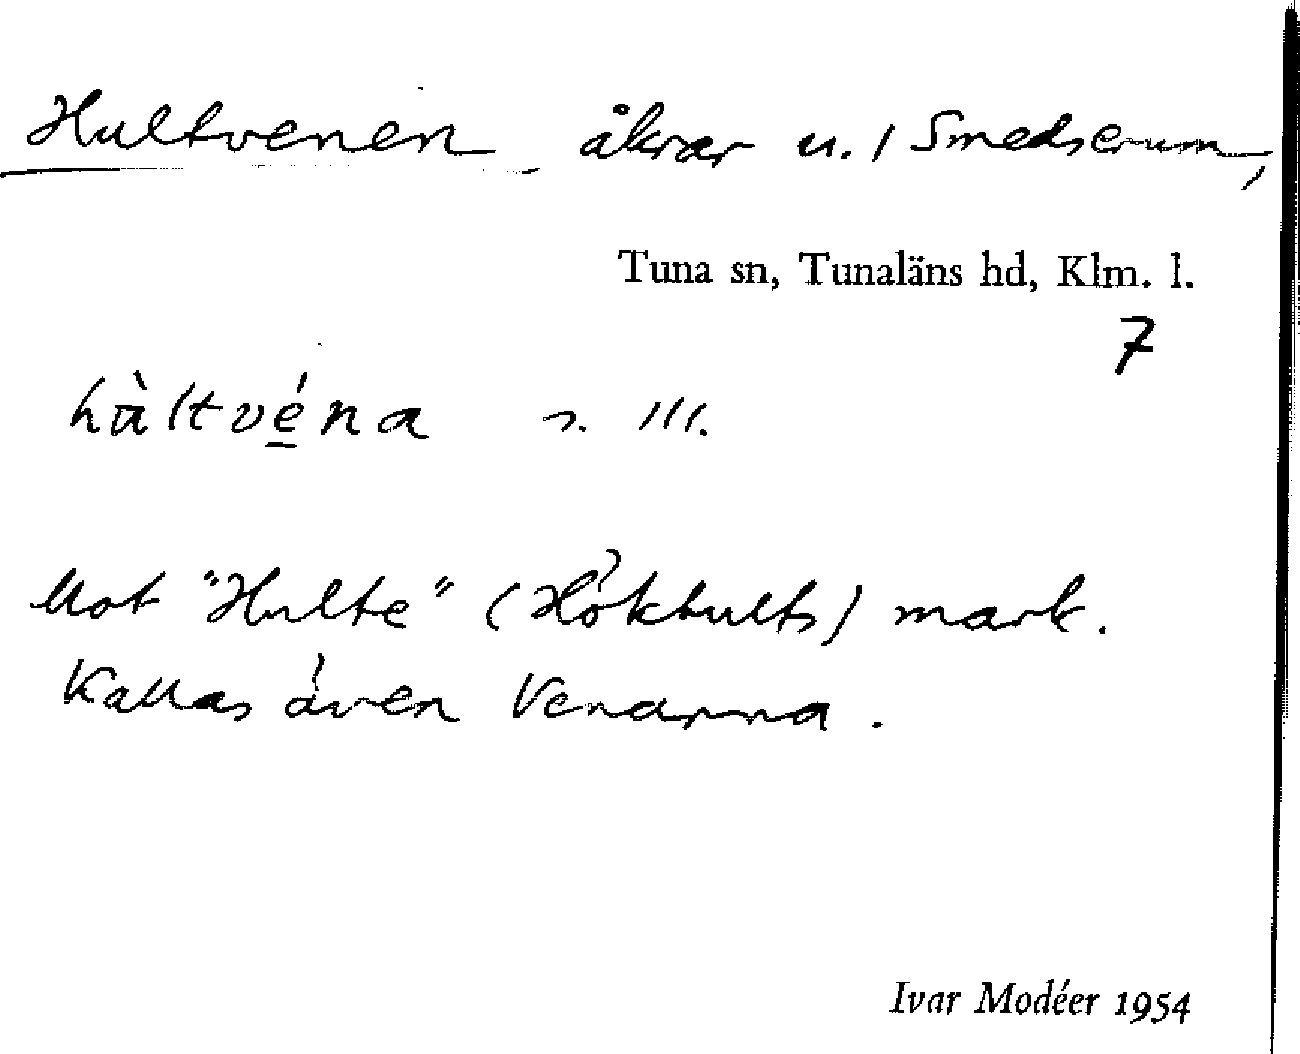 Hultvenen, åkrar u. 1 Smedserum,
Tuna sn, Tunaläns hd, Klm. l.
7
hùltvé̱na s. III.
Mot "Hulte" (Hökhults) mark.
Kallas även Venarna.
Ivar Modéer 1954